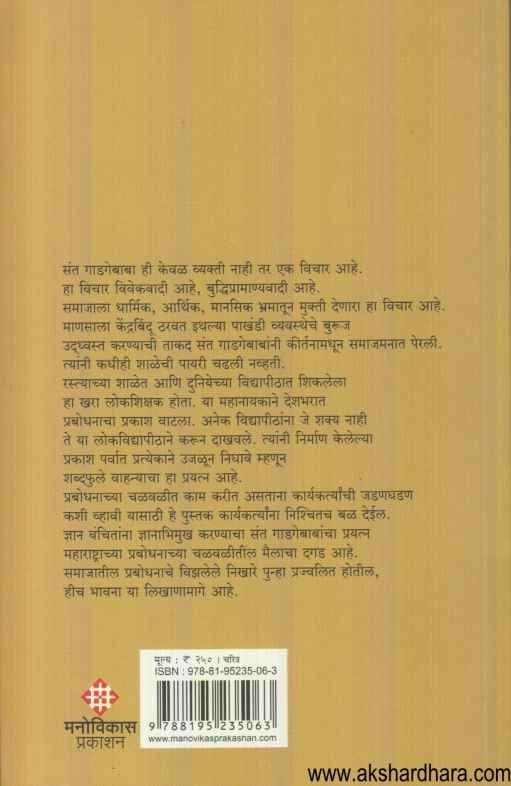 संत गाडगेबाबा ही केवळ व्यक्ती नाही तर एक विचार आहे.
हा विचार विवेकवादी आहे, बुद्धिप्रामाण्यवादी आहे.
समाजाला धार्मिक, आर्थिक, मानसिक भ्रमातून मुक्ती देणारा हा विचार आहे.
माणसाला केंद्रबिंदू ठरवत इथल्या पाखंडी व्यवस्थेचे बुरूज
उद्ध्वस्त करण्याची ताकद संत गाडगेबाबांनी कीर्तनामधून समाजमनात पेरली.
त्यांनी कधीही शाळेची पायरी चढली नव्हती.
रस्त्याच्या शाळेत आणि दुनियेच्या विद्यापीठात शिकलेला
हा खरा लोकशिक्षक होता. या महानायकाने देशभरात
प्रबोधनाचा प्रकाश वाटला. अनेक विद्यापीठांना जे शक्य नाही
ते या लोकविद्यापीठाने करून दाखवले. त्यांनी निर्माण केलेल्या
प्रकाश पर्वात प्रत्येकाने उजळून निघावे म्हणून
शब्दफुले वाहन्याचा हा प्रयत्न आहे.
प्रबोधनाच्या चळवळीत काम करीत असताना कार्यकर्त्यांची जडणघडण
कशी व्हावी यासाठी हे पुस्तक कार्यकर्त्यांना निश्चितच बळ देईल.
ज्ञान वंचितांना ज्ञानाभिमुख करण्याचा संत गाडगेबाबांचा प्रयत्न
महाराष्ट्राच्या प्रबोधनाच्या चळवळीतील मैलाचा दगड आहे.
समाजातील प्रबोधनाचे विझलेले निखारे पुन्हा प्रज्वलित होतील,
हीच भावना या लिखाणामागे आहे.
मूल्य : ₹ २५० । चरित्र
ISBN : 978-81-95235-06-3
9 788195 235063
www.manovikasprakashan.com
मनोविकास
प्रकाशन
www.akshardhara.com